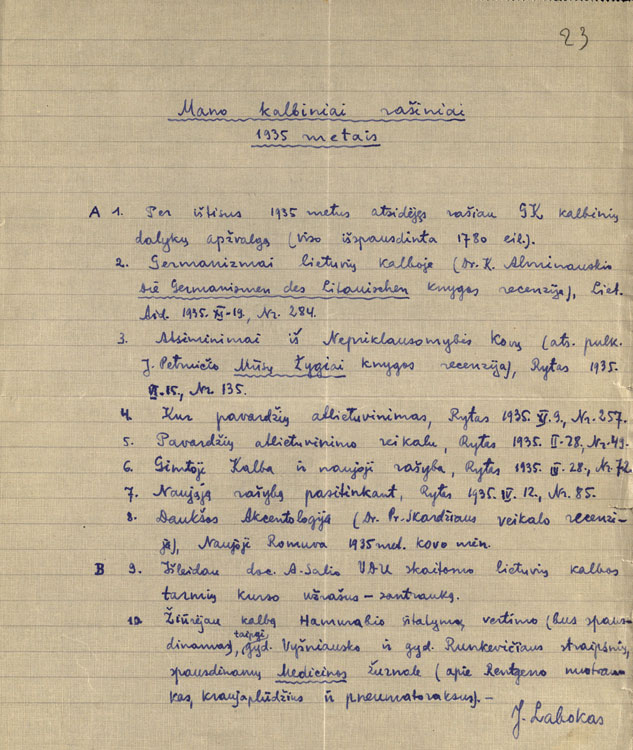 23
Mano kalbiniai rašiniai
1935 metais
A 1. Per ištisus 1935 metus atsidėjęs rašiau GK kalbinių
dalykų apžvalgą (viso išspausdinta 1780 eil.).
2. Germanizmai lietuvių kalboje (Dr. K. Alminauskio
Die Germanismen des Litauischen knygos recenzija), Liet.
Aid. 1935. XI-19, Nr. 284.
3. Atsiminimai iš Nepriklausomybės Kovų (ats. pulk.
J. Petruičio Mūsų Žygiai knygos recenzija), Rytas 1935.
VI-15, Nr. 135.
4. Kur pavardžių atlietuvinimas, Rytas 1935. XI.9, Nr. 257.
5. Pavardžių atlietuvinimo reikalu, Rytas 1935. II-28, Nr. 49.
6. Gimtoji Kalba ir naujoji rašyba, Rytas 1935. III-28., Nr. 72
7. Naująją rašybą pasitinkant, Rytas 1935. IV. 12., Nr. 85.
8. Daukšos Akcentologija (Dr. Pr. Skardžiaus veikalo recenzi-
ja), Naujoji Romuva 1935 met. kovo mėn.
B 9. Išleidau doc. A. Salio VDU skaitomo lietuvių kalbos
tarmių kurso užrašus – santrauką.
10. Žiūrėjau kalbą Hamurabio įstatymų vertimo (bus spaus-
dinamas), taipgi gyd. Vyšniausko ir gyd. Runkevičiaus straipsnių,
spausdinamų Medicinos žurnale (apie Rentgeno nuotrau-
kas, kraujaplūdžius ir pneumatoraksus). –
J. Labokas